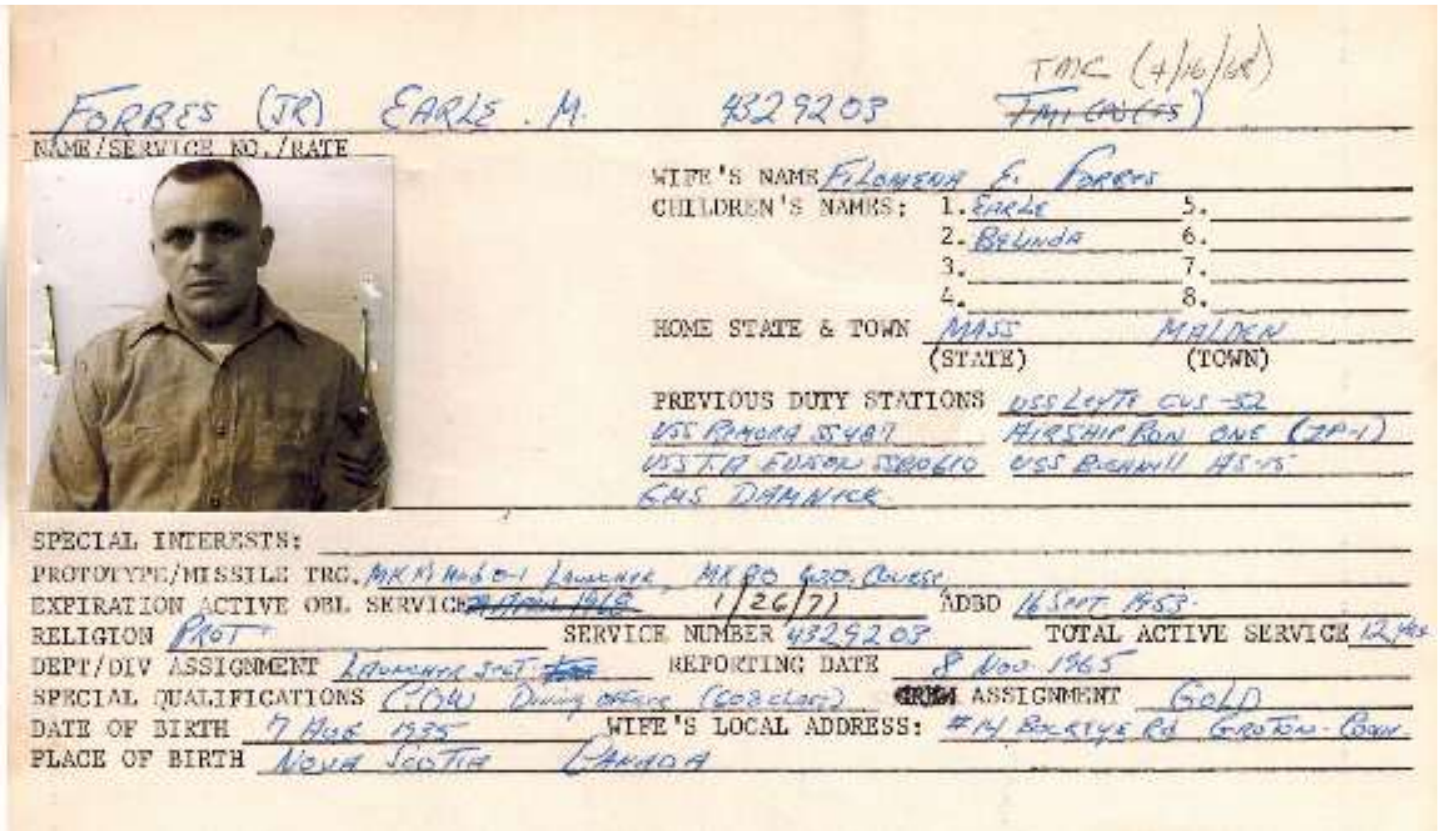 TMC (4/16/68)
FORBES (JR) EARLE . M. 4329203
NAME/SERVICE NO./RATE
WIFE'S NAME FILOMENA E. FORBES
CHILDREN'S NAMES: 1. EARLE 5.
2. BELINDA 6.
3. 7.
4. 8.
HOME STATE & TOWN MASS MALDEN
(STATE) (TOWN)
PREVIOUS DUTY STATIONS USS LEYTE CVS-32
USS REMORA SS487 AIRSHIP RON ONE (ZP-1)
USS T.A EDISON SSBN610 USS BUSHNELL AS-15
GMS DAMNECK
SPECIAL INTERESTS:
PROTOTYPE/MISSILE TRG. LAUNCHER, MK 80 COURSE
EXPIRATION ACTIVE OBL SERVICE 1/26/71 ADBD 16 SEPT. 1953
RELIGION PROT SERVICE NUMBER 4329203 TOTAL ACTIVE SERVICE 12 yrs
DEPT/DIV ASSIGNMENT LAUNCHER REPORTING DATE 8 Nov 1965
SPECIAL QUALIFICATIONS Diving Officer (608 class) ASSIGNMENT GOLD
DATE OF BIRTH 7 AUG 1935 WIFE'S LOCAL ADDRESS: #14 Rd GROTON - CONN
PLACE OF BIRTH NOVA SCOTIA CANADA